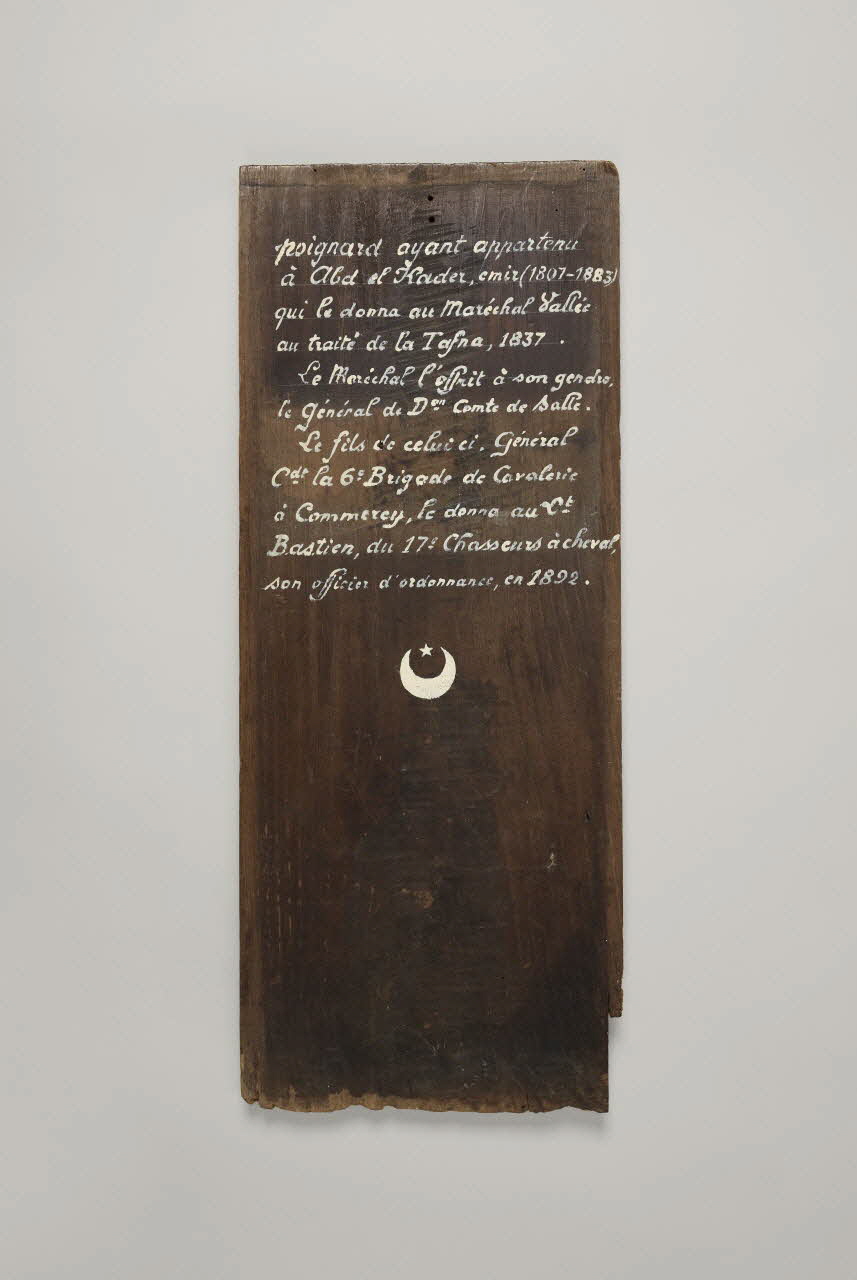 poignard ayant appartenu
à Abd el Kader, emir (1807-1883)
qui le donna au Maréchal Vallée
au traité de la Tafna, 1837.
Le Maréchal l'offrit à son gendre,
le Général de Don Comte de Salle.
Le fils de celui ci. Général
Cdt la 6e Brigade de Cavalerie
à Commercy, le donna au Lt
Bastien, du 17e Chasseurs à cheval,
son officier d'ordonnance, en 1892.